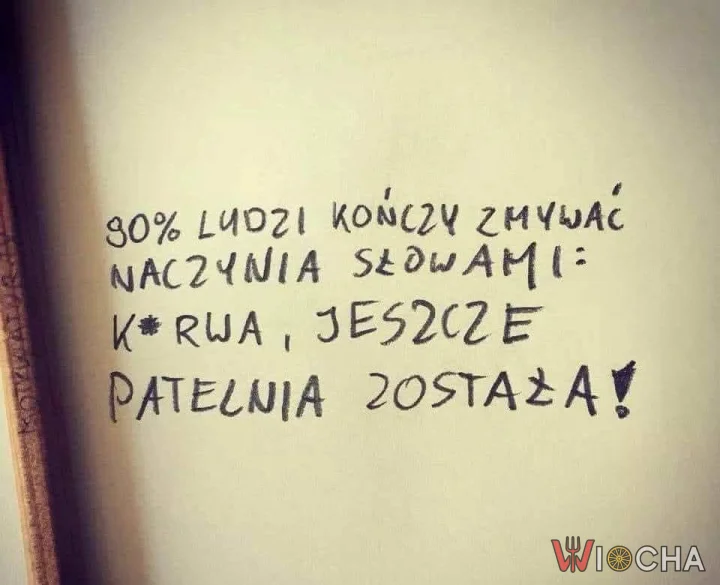 90% LUDZI KOŃCZY ZMYWAĆ
NACZYNIA SŁOWAMI:
K*RWA, JESZCZE
PATELNIA ZOSTAŁA!
WIOCHA